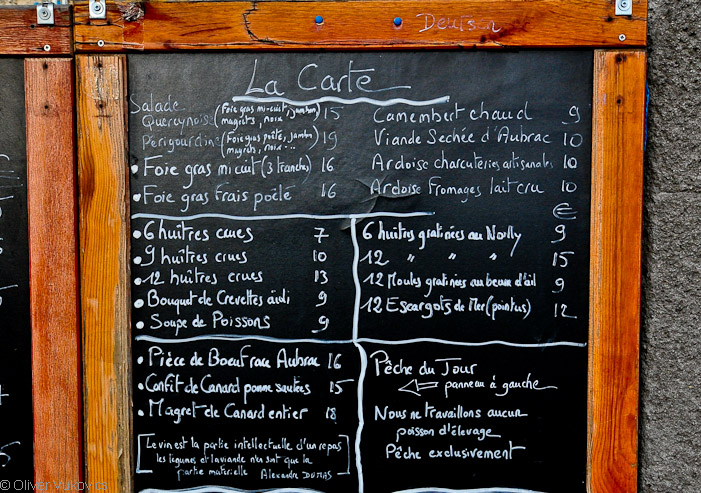 Deutsch
La Carte
Salade
Quercynoise (Foie gras mi-cuit, jambon, magrets, noix, ..) 15
Périgourdine (Foie gras poêlé, jambon, magrets, noix, ..) 19
• Foie gras mi cuit (3 tranches) 16
• Foie gras frais poêlé 16
Camembert chaud 9
Viande Sechée d'Aubrac 10
Ardoise charcuteries artisanales 10
Ardoise Fromages lait cru 10
€
• 6 huîtres crues 7
• 9 huîtres crues 10
• 12 huîtres crues 13
• Bouquet de Crevettes aïoli 9
• Soupe de Poissons 9
6 huîtres gratinées au Noilly 9
12 " " " 15
12 Moules gratinées au beurre d'ail 9
12 Escargots de Mer (pointus) 12
• Pièce de Boeuf race Aubrac 16
• Confit de Canard pomme sautées 15
• Magret de Canard entier 18
Le vin est la partie intellectuelle d'un repas
les légumes et la viande n'en sont que la
partie matérielle Alexandre DUMAS
Pêche du Jour
panneau à gauche
Nous ne travaillons aucun
poisson d'élevage
Pêche exclusivement
© Oliver Vukovic